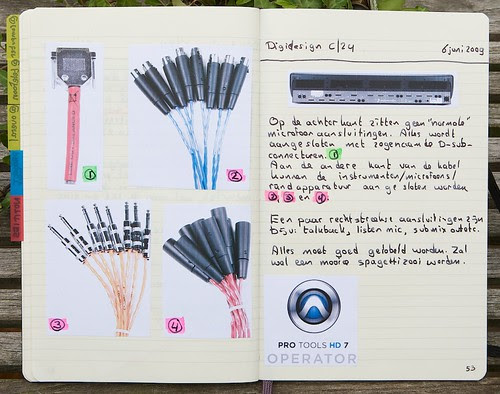 1
2
3
4
Digidesign C|24
6 juni 2009
Op de achterkant zitten geen "normale"
microfoonaansluitingen. Alles wordt
aangesloten met zogenaamde D-sub-
connecturen. 1
Aan de andere kant van de kabel
kunnen de instrumenten/microfoons/
randapparatuur aangesloten worden
2, 3 en 4.
Een paar rechtstreekse aansluitingen zijn
talkback, listen mic, submix
Alles moet goed gelabeld worden. Zal
wel een mooie spagettizooi worden.
PRO TOOLS HD 7
OPERATOR
53